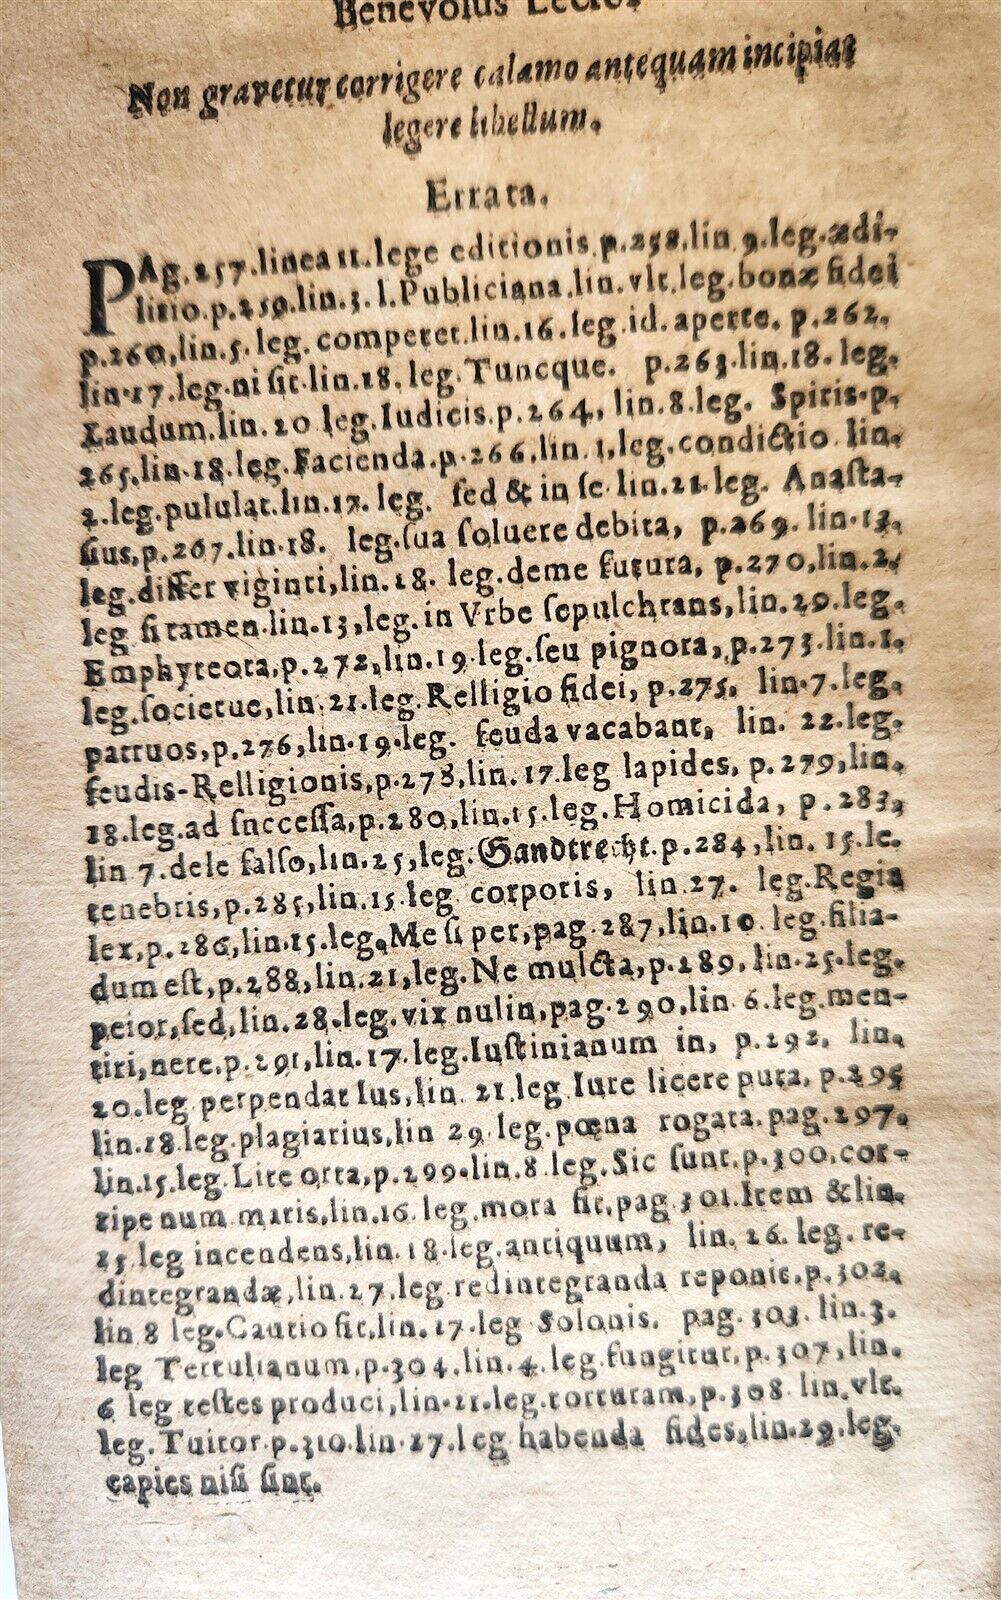 Benevolus Lector
Non gravetur corrigere calamo antequam incipias
legere libellum.
Errata.
PAg. 257. linea 11. lege editionis p. 258. lin 9. leg. ædi-
litio. p. 259. lin. 3. l. Publiciana. lin. vlt. leg. bonæ fidei
p. 260, lin. 5. leg. competet. lin. 16. leg. id. aperte. p. 262.
lin. 17. leg. ni sit. lin. 18. leg. Tuncque. p. 263. lin. 18. leg.
Laudum. lin. 20 leg. Iudicis. p. 264, lin. 8. leg. Spiris. p.
265. lin. 18. leg. Facienda. p. 266. lin. 1. leg. condictio lin.
2. leg. pululat. lin. 17. leg. sed & in se lin. 21. leg. Anasta-
sius, p. 267. lin. 18. leg. sua soluere debita, p. 269. lin. 13.
leg. differ viginti, lin. 18. leg. deme futura, p. 270, lin. 2.
leg si tamen. lin. 13, leg. in Vrbe sepulchrans, lin. 29. leg.
Emphyteota, p. 272, lin. 19. leg. seu pignora, p. 273. lin. 1.
leg. societue, lin. 21. leg. Relligio fidei, p. 275. lin. 7. leg.
patruos, p. 276, lin. 19. leg. feuda vacabant, lin. 22. leg.
feudis-Relligionis, p. 278, lin. 17. leg lapides, p. 279, lin.
18. leg. ad successa, p. 280, lin. 15. leg. Homicida, p. 283,
lin 7. dele falso, lin. 25, leg. Handtrecht. p. 284, lin. 15. le.
tenebris, p. 285, lin. 15. leg corporis, lin. 27. leg. Regia
lex, p. 286, lin. 15. leg. Me si per, pag. 287, lin. 10 leg. filia-
dum est, p. 288, lin. 21, leg. Ne mulcta, p. 289. lin. 25. leg.
peior, sed, lin. 28. leg. vix nulin, pag. 290, lin. 6. leg. men-
tiri, nere, p. 291, lin. 17. leg. Iustinianum in, p. 292. lin.
20. leg perpendat Ius, lin. 21 leg. Iure licere puta, p. 295
lin. 18. leg. plagiarius, lin 29. leg. pœna rogata. pag. 297.
lin. 15. leg. Lite orta, p. 299. lin. 8. leg. Sic sunt. p. 300. cor-
ripe num maris, lin. 16. leg. mora sit, pag. 301. Item & lin.
25. leg incendens, lin. 18. leg. antiquum, lin. 26. leg. re-
dintegrandæ, lin. 27. leg. redintegranda reponit. p. 302.
lin 8 leg. Cautio sit, lin. 17. leg Solonis. pag. 303. lin. 3.
leg Tertulianum, p. 304. lin. 4. leg. fungitur, p. 307, lin.
6 leg testes produci, lin. 21. leg. torturam, p. 308. lin. vlt.
leg. Tuitor. p. 310. lin. 27. leg habenda fides, lin. 29. leg.
capies nisi sint.